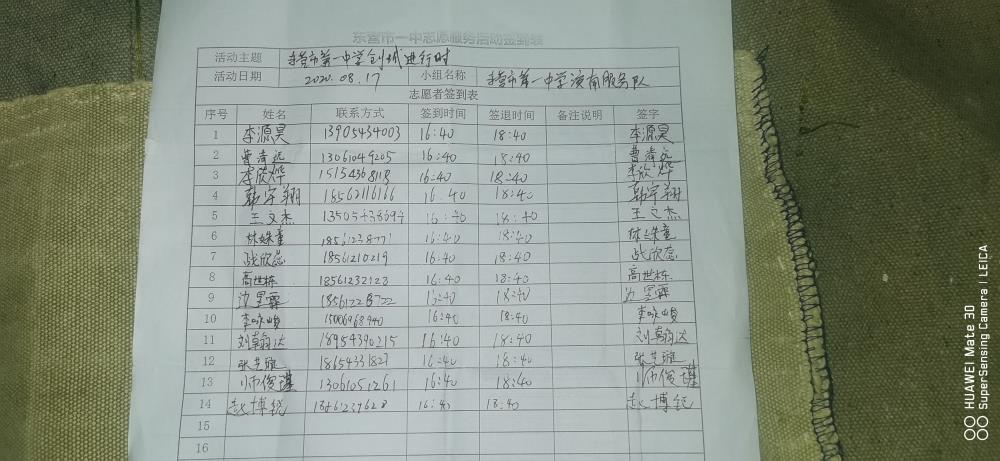 东营市一中志愿服务活动签到表
活动主题 东营市第一中学创城进行时
活动日期 2020.08.17 小组名称 东营市第一中学滨南服务队
志愿者签到表
序号 姓名 联系方式 签到时间 签退时间 备注说明 签字
1 李源昊 13905434003 16:40 18:40 李源昊
2 曹 13061049205 16:40 18:40 曹
3 李欣烨 16:40 18:40 李欣烨
4 韩宇翔 18562116166 16:40 18:40 韩宇翔
5 王文杰 16:40 18:40 王文杰
6 林姝童 18561238771 16:40 18:40 林姝童
7 战欣蕊 18561210219 16:40 18:40 战欣蕊
8 高世栋 18561232123 16:40 18:40 高世栋
9 16:40 18:40
10 李咏峻 15006968940 16:40 18:40 李咏峻
11 刘翰达 18954390215 16:40 18:40 刘翰达
12 张艺璇 18654331827 16:40 18:40 张艺璇
13 师俊瑾 13061051261 16:40 18:40 师俊瑾
14 赵博锐 18561239628 16:40 18:40 赵博锐
15
16
HUAWEI Mate 30
SuperSensing Camera | LEICA